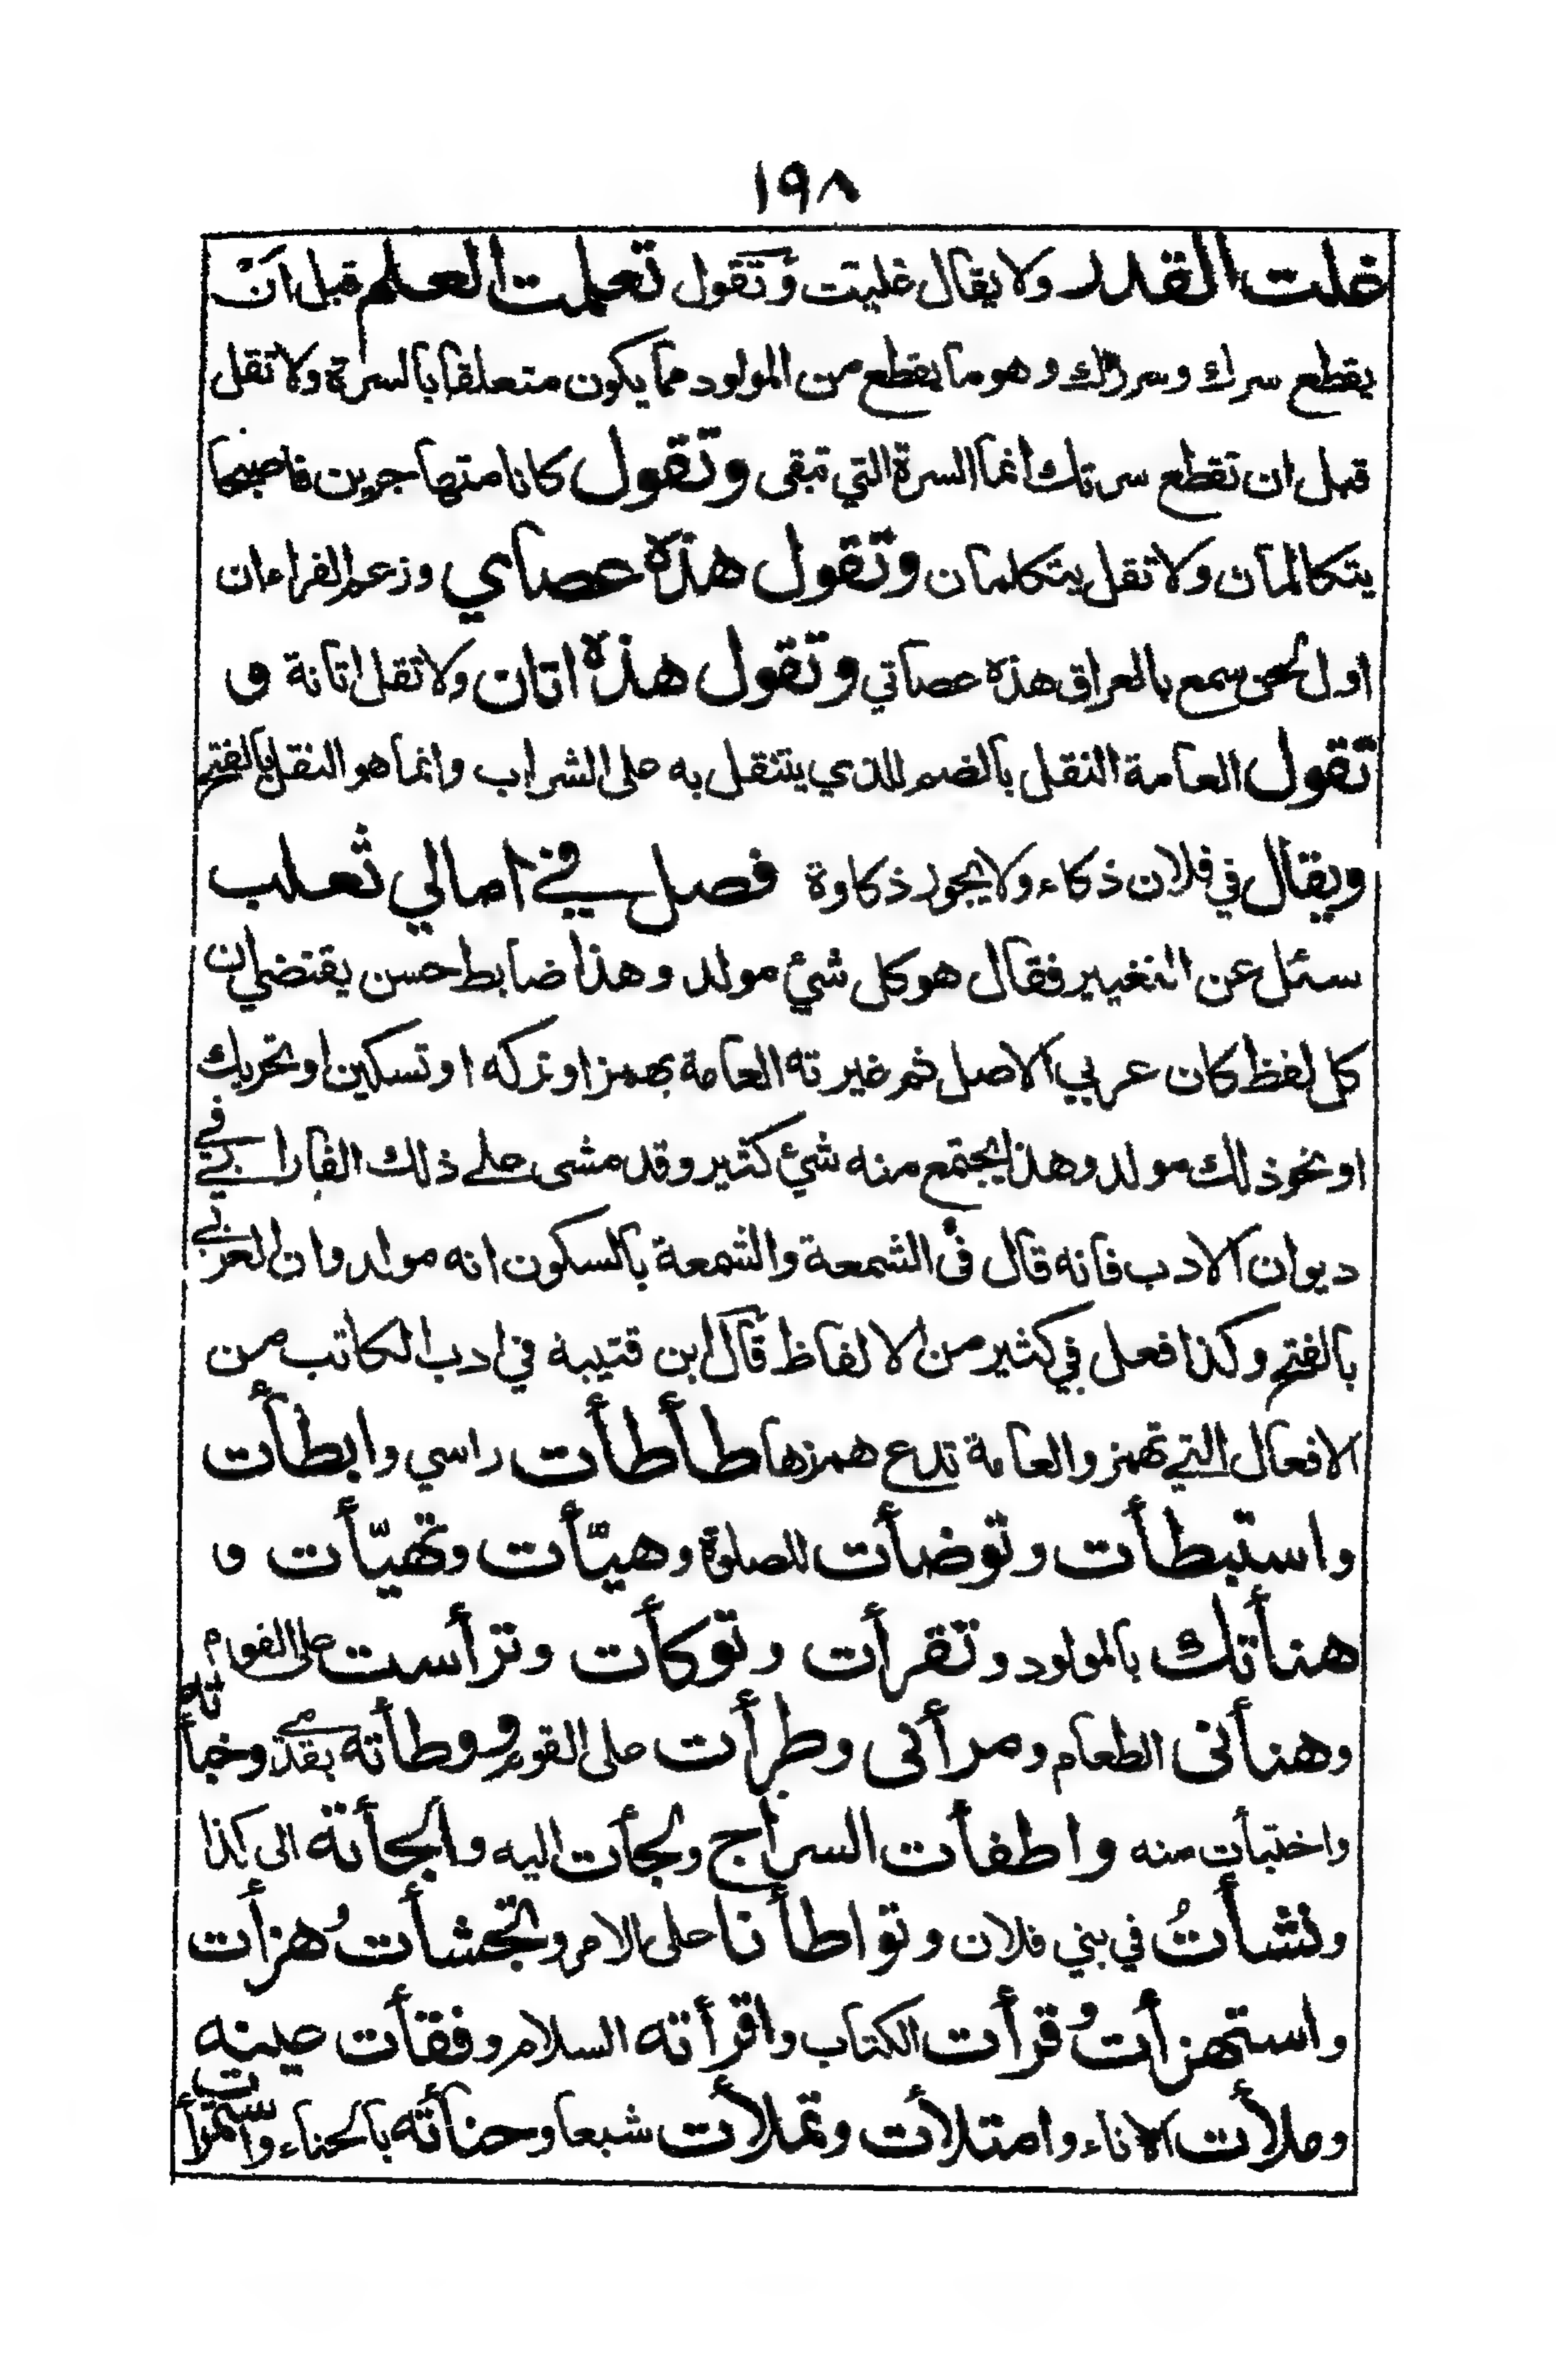 ١٩٨
غلت القدر ولا يقال غليت وتقول تعلمت العلم قبل ان
يقطع سرك وسررك وهو ما يقطع من المولود مما يكون متعلقا بالسرة ولا تقل
قبل ان تقطع سرتك انما السرة التي تبقى وتقول كانا متهاجرين فاصبحا
يتكالمان ولا تقل يتكلمان وتقول هذه عصاي وزعم الفراء ان
اول لحن سمع بالعراق هذه عصاتي وتقول هذه اتان ولا تقل اتانة و
تقول العامة النقل بالضم للذي ينتقل به على الشراب وانما هو النقل بالفتح
ويقال في فلان ذكاء ولا يجوز ذكاوة فصل في امالي ثعلب
سئل عن التغيير فقال هو كل شئ مولد وهذا ضابط حسن يقتضي ان
كل لفظ كان عربي الاصل ثم غيرته العامة بهمز او تركه او تسكين او تحريك
او نحو ذلك مولد وهذا يجتمع منه شئ كثير وقد مشى على ذلك الفارابي في
ديوان الادب فانه قال في الشمعة والشمعة بالسكون انه مولد وان العربي
بالفتح وكذا فعل في كثير من الالفاظ قال ابن قتيبة في ادب الكاتب من
الافعال التي تهمز والعامة تدع همزها طأطأت راسي وابطأت
واستبطأت وتوضأت للصلوة وهيّأت وتهيّأت و
هنأتك بالمولود وتقرأت وتوكأت وترأست على القوم
وهنأنى الطعام ومرأنى وطرأت على القوم ووطأته بقدمي وخبأته
واختبأت منه واطفأت السراج ولجأت اليه والجأته الى كذا
ونشأتُ في بني فلان وتواطأنا على الامر وتجشأت وهزأت
واستهزأت وقرأت الكتاب واقرأته السلام وفقأت عينه
وملأت الاناء وامتلأت وتملأت شبعا وحنأته بالحناء واستمرأت